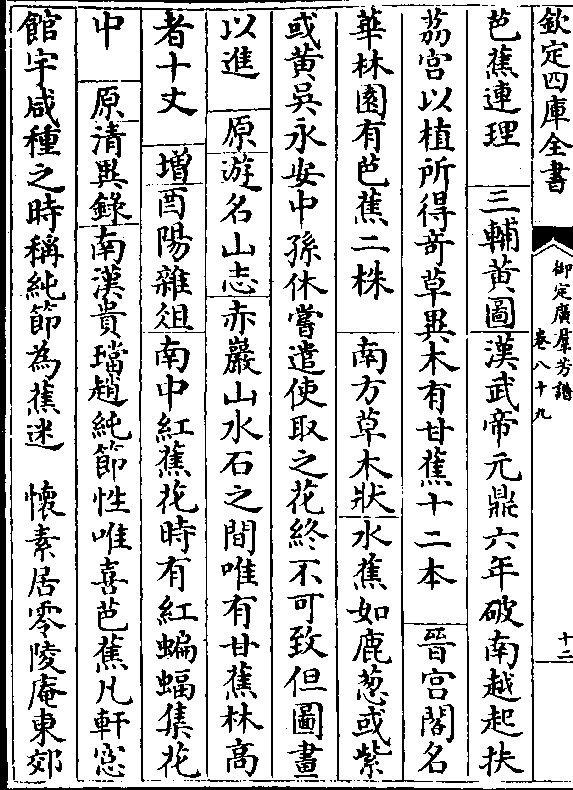 欽定四庫全書
御定廣羣芳譜
卷八十九
十二
芭蕉連理　三輔黄圖漢武帝元鼎六年破南越起扶
荔宫以植所得奇草異木有甘蕉十二本　晉宫閣名
華林園有芭蕉二株　南方草木狀水蕉如鹿葱或紫
或黄吳永安中孫休嘗遣使取之花終不可致但圖畫
以進　原遊名山志赤巖山水石之間唯有甘蕉林高
者十丈　增酉陽雜俎南中紅蕉花時有紅蝙蝠集花
中　原清異錄南漢貴璫趙純節性唯喜芭蕉凡軒窓
館宇咸種之時稱純節為蕉迷　懷素居零陵庵東郊